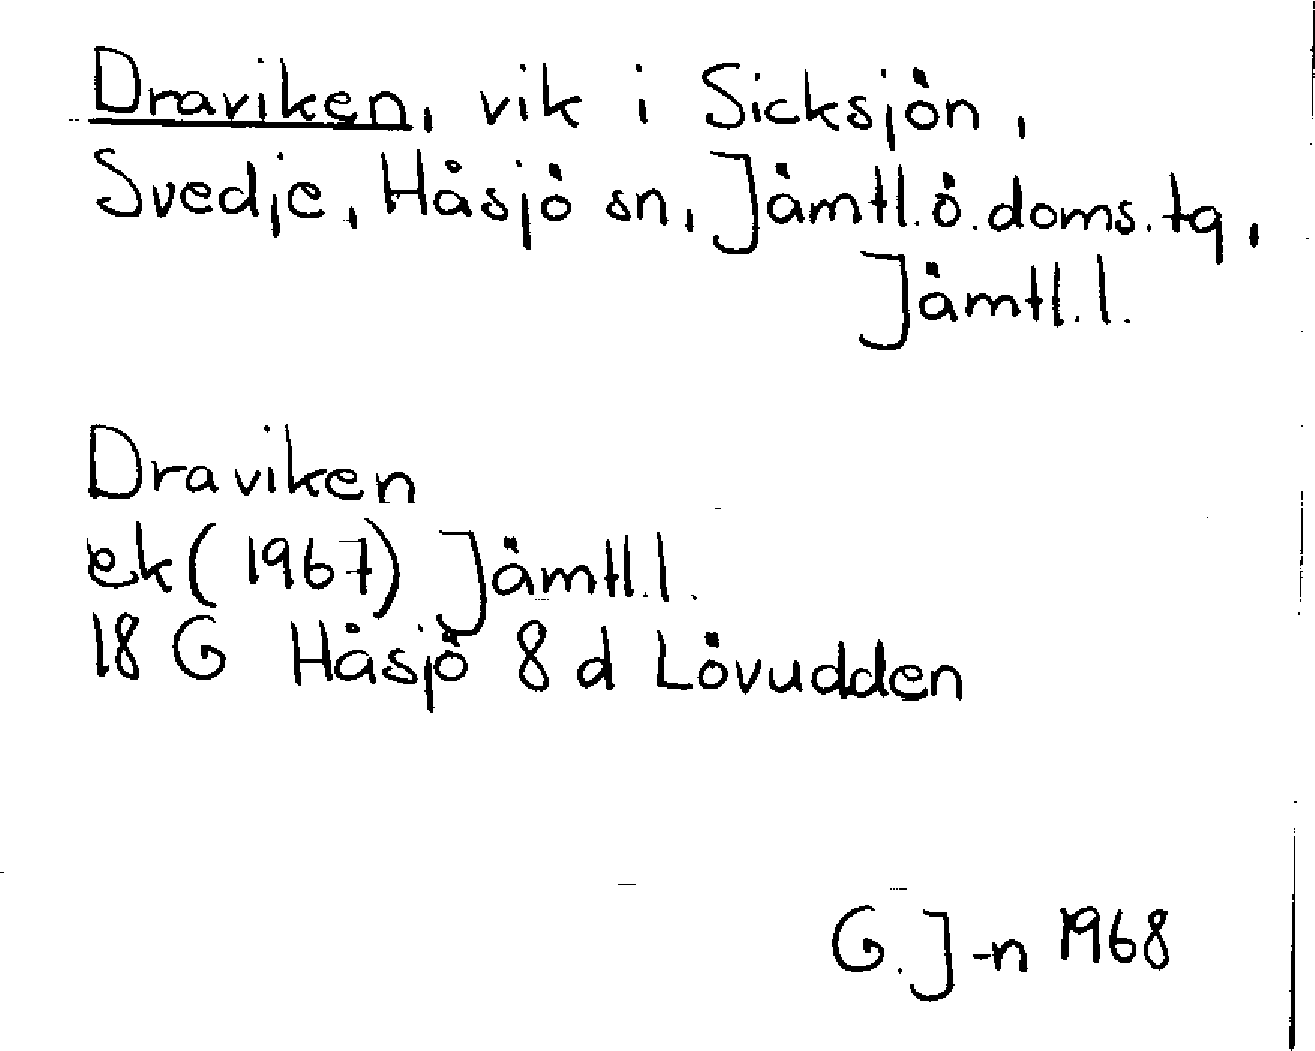 Draviken, vik i Sicksjön,
Svedje, Håsjö sn, Jämtl.ö.doms.tg,
Jämtl.l.
Draviken
ek (1967) Jämtl.l.
18 G Håsjö 8 d Lövudden
G.J-n 1968